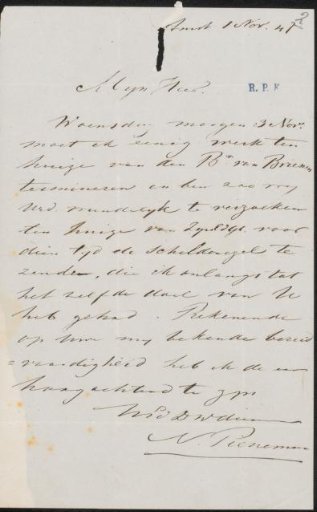 Amst 1 Nov. 47
Mijn Heer.
R. P. K
Woensdag morgen 3 Nov.
moet ik eenig werk ten
huize van den Bn van Brienen
termineren en ben zoo vrij
UEd. vriendelijk te verzoeken
ten huize van ZynEdl. voor
dien tyd de schilderezel te
zenden, die ik onlangs tot
het zelfde doel van U
heb gehad. Rekenende
op uwe my bekende bereid
= vaardigheid heb ik de eer
hoogachtend te zyn
UEd DWdienaar
N Pieneman